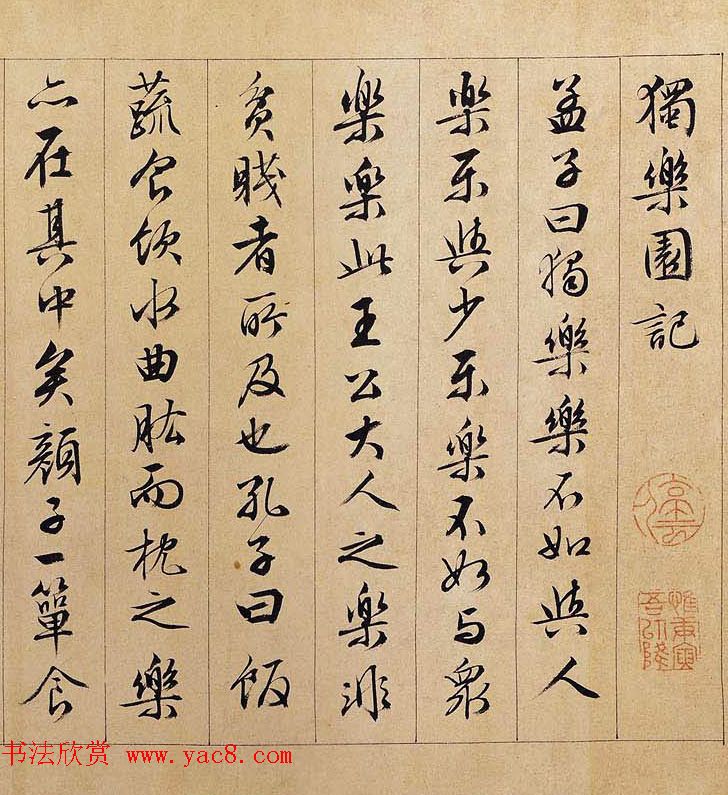 獨樂園記
孟子曰獨樂樂不如與人
樂樂與少樂樂不如与衆
樂樂此王公大人之樂非
貧賤者所及也孔子曰飯
蔬食飲水曲肱而枕之樂
亦在其中矣顏子一簞食
惟庚寅吾以降
书法欣赏 www.yac8.com